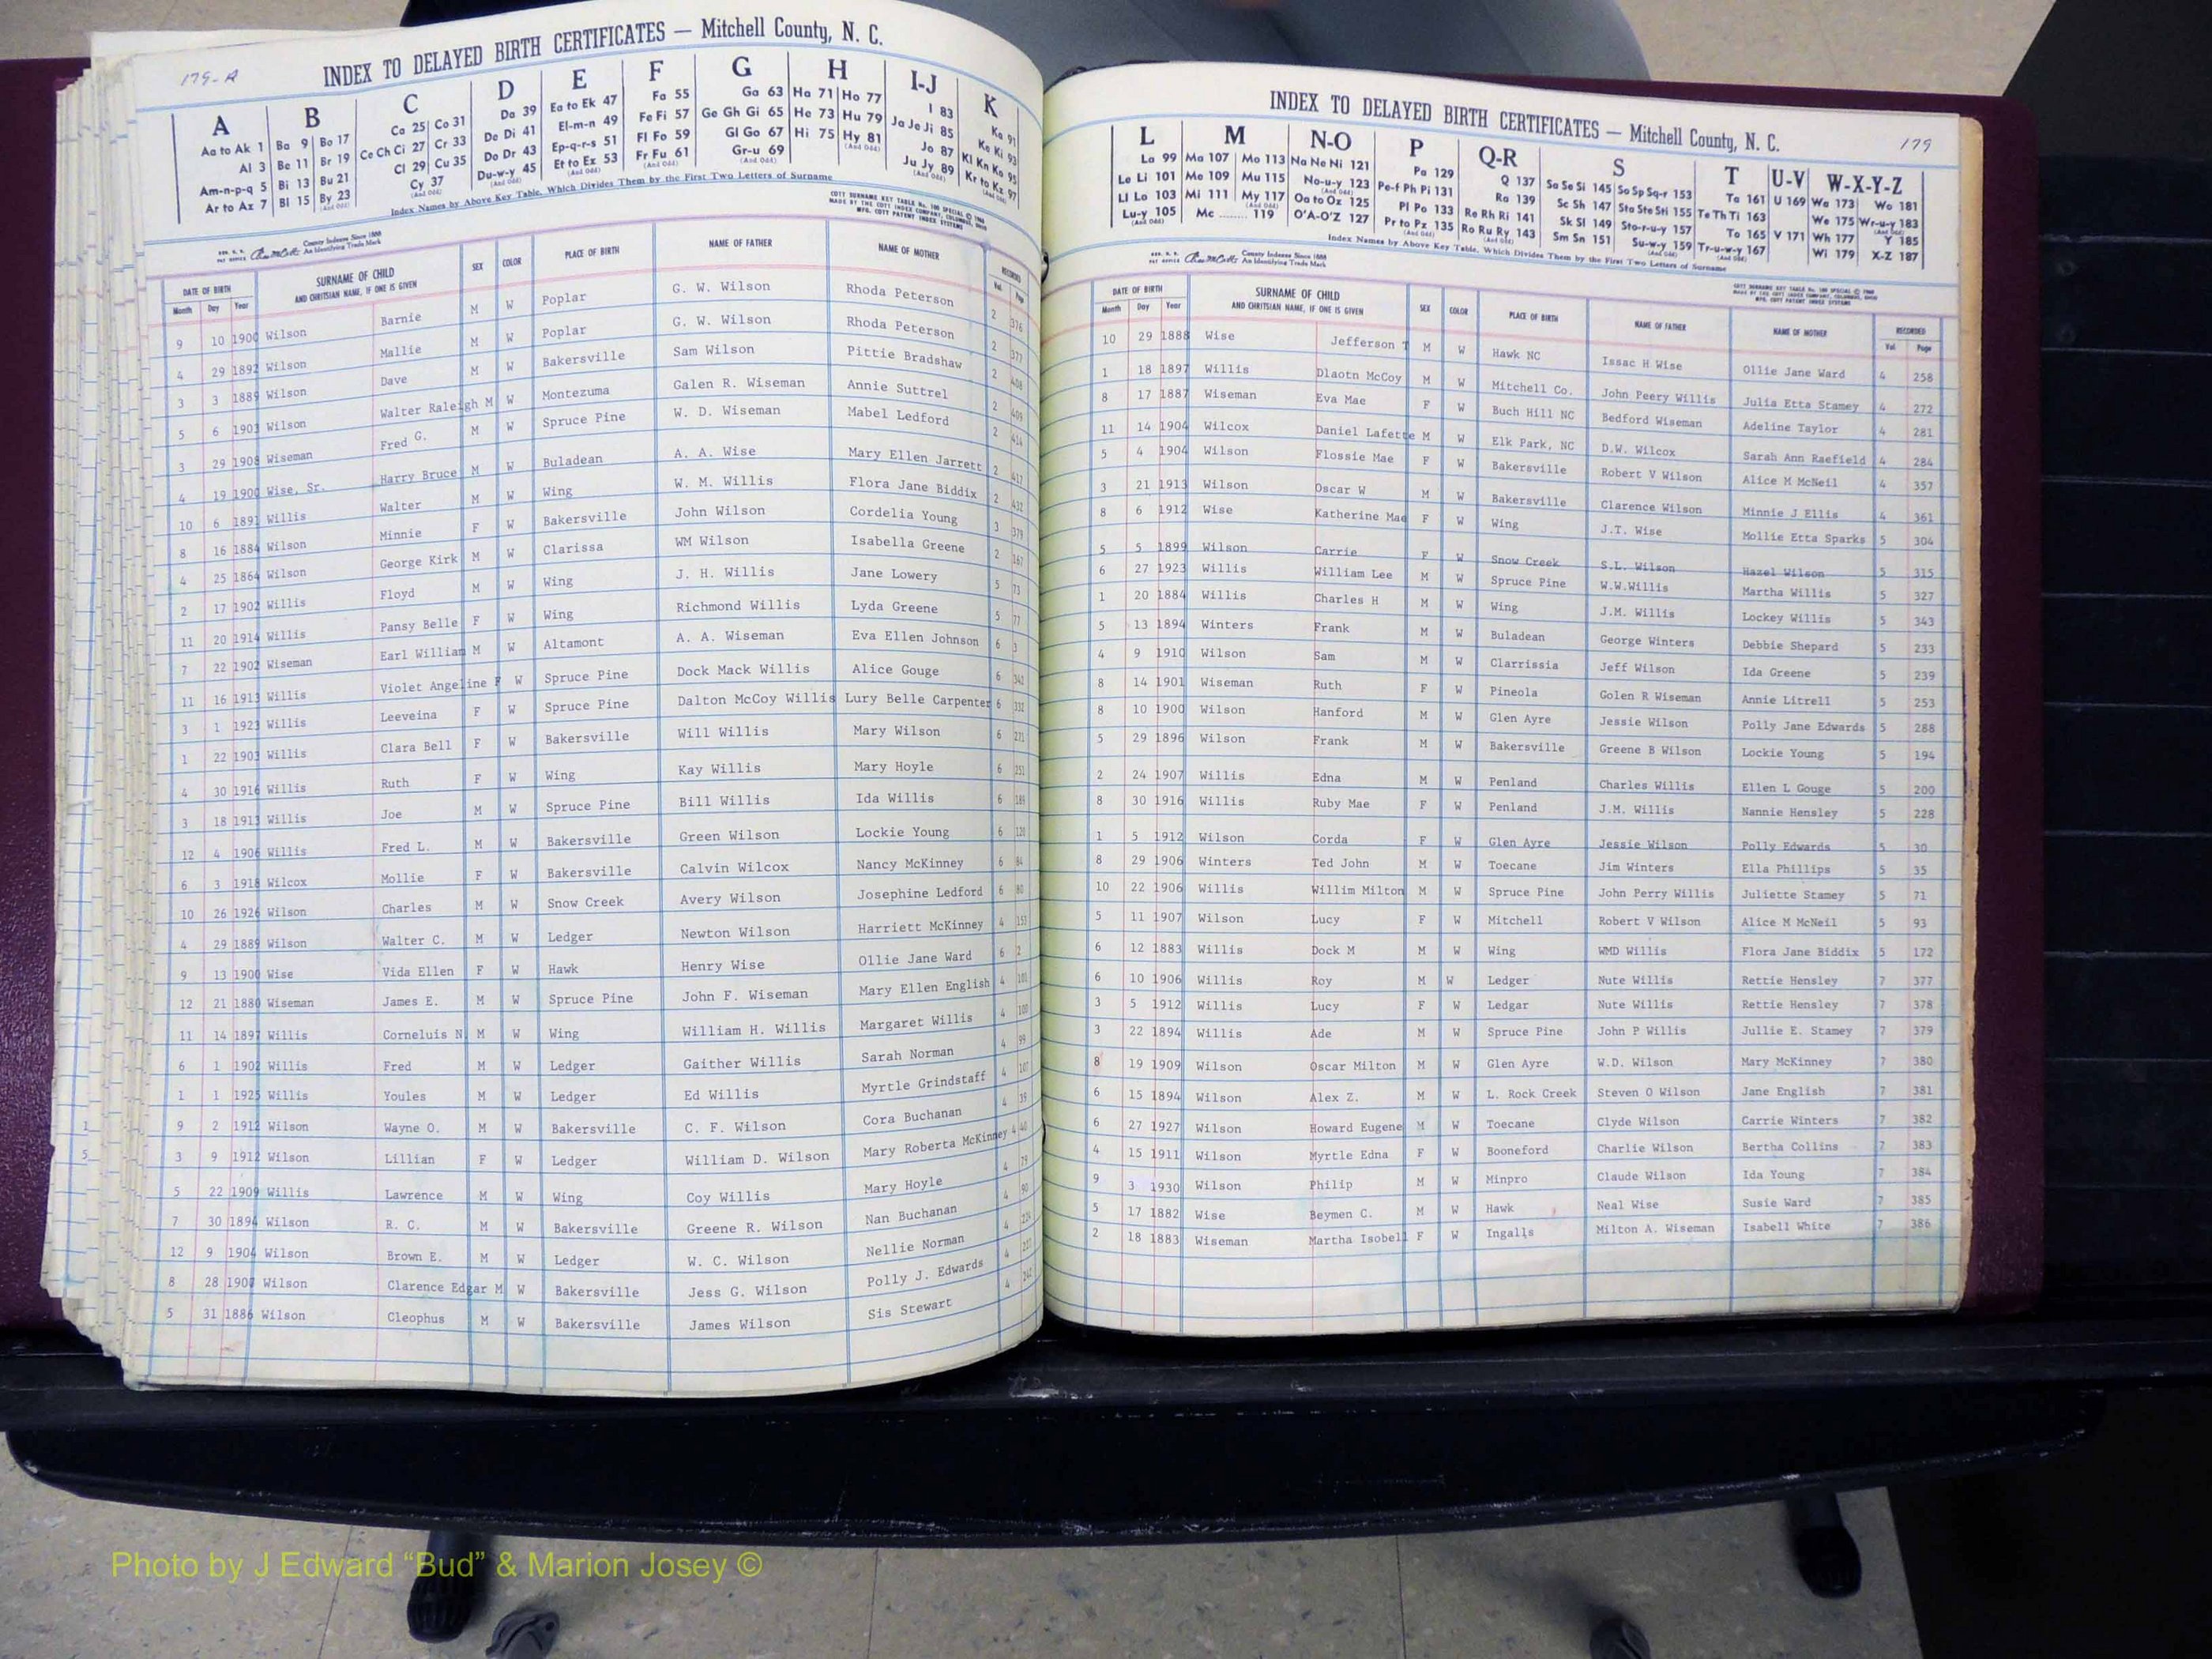 179-A
INDEX TO DELAYED BIRTH CERTIFICATES — Mitchell County, N. C.
A B C D E F G H I-J K
Aa to Ak 1 Ba 9 Bo 17 Ca 25 Co 31 Da 39 Ea to Ek 47 Fa 55 Ga 63 Ha 71 Ho 77 I 83 Ka 91
Al 3 Be 11 Br 19 Ce Ch Ci 27 Cr 33 De Di 41 El-m-n 49 Fe Fi 57 Ge Gh Gi 65 He 73 Hu 79 Ja Je Ji 85 Ke Ki 93
Am-n-p-q 5 Bi 13 Bu 21 Cl 29 Cu 35 Do Dr 43 Ep-q-r-s 51 Fl Fo 59 Gl Go 67 Hi 75 Hy 81 Jo 87 Kl Kn Ko 95
Ar to Az 7 Bl 15 By 23 Cy 37 Du-w-y 45 Et to Ex 53 Fr Fu 61 Gr-u 69 Ju Jy 89 Kr to Kz 97
Index Names by Above Key Table, Which Divides Them by the First Two Letters of Surname
COTT SURNAME KEY TABLE No. 100 SPECIAL
MADE BY THE COTT INDEX COMPANY, COLUMBUS, OHIO
MFG. COTT PATENT INDEX SYSTEMS
County Indexes Since 1888
An Identifying Trade Mark
DATE OF BIRTH SURNAME OF CHILD SEX COLOR PLACE OF BIRTH NAME OF FATHER NAME OF MOTHER RECORDED
Month Day Year AND CHRITSIAN NAME, IF ONE IS GIVEN Vol. Page
9 10 1900 Wilson Barnie M W Poplar G. W. Wilson Rhoda Peterson 2 376
4 29 1892 Wilson Mallie M W Poplar G. W. Wilson Rhoda Peterson 2 377
3 3 1889 Wilson Dave M W Bakersville Sam Wilson Pittie Bradshaw 2 408
5 6 1903 Wilson Walter Raleigh M W Montezuma Galen R. Wiseman Annie Suttrel 2 409
3 29 1908 Wiseman Fred G. M W Spruce Pine W. D. Wiseman Mabel Ledford 2 414
4 19 1900 Wise, Sr. Harry Bruce M W Buladean A. A. Wise Mary Ellen Jarrett 2 417
10 6 1891 Willis Walter M W Wing W. M. Willis Flora Jane Biddix 2 432
8 16 1884 Wilson Minnie F W Bakersville John Wilson Cordelia Young 3 379
4 25 1864 Wilson George Kirk M W Clarissa WM Wilson Isabella Greene 2 167
2 17 1902 Willis Floyd M W Wing J. H. Willis Jane Lowery 5 73
11 20 1914 Willis Pansy Belle F W Wing Richmond Willis Lyda Greene 5 77
7 22 1902 Wiseman Earl William M W Altamont A. A. Wiseman Eva Ellen Johnson 6 3
11 16 1913 Willis Violet Angeline F W Spruce Pine Dock Mack Willis Alice Gouge 6 341
3 1 1923 Willis Leeveina F W Spruce Pine Dalton McCoy Willis Lury Belle Carpenter 6 332
1 22 1903 Willis Clara Bell F W Bakersville Will Willis Mary Wilson 6 271
4 30 1916 Willis Ruth F W Wing Kay Willis Mary Hoyle 6 251
3 18 1913 Willis Joe M W Spruce Pine Bill Willis Ida Willis 6 189
12 4 1906 Willis Fred L. M W Bakersville Green Wilson Lockie Young 6 120
6 3 1918 Wilcox Mollie F W Bakersville Calvin Wilcox Nancy McKinney 6 84
10 26 1926 Wilson Charles M W Snow Creek Avery Wilson Josephine Ledford 6 80
4 29 1889 Wilson Walter C. M W Ledger Newton Wilson Harriett McKinney 4 153
9 13 1900 Wise Vida Ellen F W Hawk Henry Wise Ollie Jane Ward 6 2
12 21 1880 Wiseman James E. M W Spruce Pine John F. Wiseman Mary Ellen English 4 101
11 14 1897 Willis Corneluis N. M W Wing William H. Willis Margaret Willis 4 100
6 1 1902 Willis Fred M W Ledger Gaither Willis Sarah Norman 4 99
1 1 1925 Willis Youles M W Ledger Ed Willis Myrtle Grindstaff 4 107
9 2 1912 Wilson Wayne O. M W Bakersville C. F. Wilson Cora Buchanan 4 39
3 9 1912 Wilson Lillian F W Ledger William D. Wilson Mary Roberta McKinney 4 40
5 22 1909 Willis Lawrence M W Wing Coy Willis Mary Hoyle 4 79
7 30 1894 Wilson R. C. M W Bakersville Greene R. Wilson Nan Buchanan 4 90
12 9 1904 Wilson Brown E. M W Ledger W. C. Wilson Nellie Norman 4
8 28 1907 Wilson Clarence Edgar M W Bakersville Jess G. Wilson Polly J. Edwards 4
5 31 1886 Wilson Cleophus M W Bakersville James Wilson Sis Stewart 4 242
1
5
179
INDEX TO DELAYED BIRTH CERTIFICATES — Mitchell County, N. C.
L M N-O P Q-R S T U-V W-X-Y-Z
La 99 Ma 107 Mo 113 Na Ne Ni 121 Pa 129 Q 137 Sa Se Si 145 So Sp Sq-r 153 Ta 161 U 169 Wa 173 Wo 181
Le Li 101 Me 109 Mu 115 No-u-y 123 Pe-f Ph Pi 131 Ra 139 Sc Sh 147 Sta Ste Sti 155 Te Th Ti 163 We 175 Wr-u-y 183
Ll Lo 103 Mi 111 My 117 Oa to Oz 125 Pl Po 133 Re Rh Ri 141 Sk Sl 149 Sto-r-u-y 157 To 165 V 171 Wh 177 Y 185
Lu-y 105 Mc ........ 119 O'A-O'Z 127 Pr to Pz 135 Ro Ru Ry 143 Sm Sn 151 Su-w-y 159 Tr-u-w-y 167 Wi 179 X-Z 187
Index Names by Above Key Table, Which Divides Them by the First Two Letters of Surname
County Indexes Since 1888
An Identifying Trade Mark
COTT SURNAME KEY TABLE No. 100 SPECIAL
MADE BY THE COTT INDEX COMPANY, COLUMBUS, OHIO
MFG. COTT PATENT INDEX SYSTEMS
DATE OF BIRTH SURNAME OF CHILD SEX COLOR PLACE OF BIRTH NAME OF FATHER NAME OF MOTHER RECORDED
Month Day Year AND CHRITSIAN NAME, IF ONE IS GIVEN Vol. Page
10 29 1888 Wise Jefferson T M W Hawk NC Issac H Wise Ollie Jane Ward 4 258
1 18 1897 Willis Dlaotn McCoy M W Mitchell Co. John Peery Willis Julia Etta Stamey 4 272
8 17 1887 Wiseman Eva Mae F W Buch Hill NC Bedford Wiseman Adeline Taylor 4 281
11 14 1904 Wilcox Daniel Lafette M W Elk Park, NC D.W. Wilcox Sarah Ann Raefield 4 284
5 4 1904 Wilson Flossie Mae F W Bakersville Robert V Wilson Alice M McNeil 4 357
3 21 1913 Wilson Oscar W M W Bakersville Clarence Wilson Minnie J Ellis 4 361
8 6 1912 Wise Katherine Mae F W Wing J.T. Wise Mollie Etta Sparks 5 304
5 5 1899 Wilson Carrie F W Snow Creek S.L. Wilson Hazel Wilson 5 315
6 27 1923 Willis William Lee M W Spruce Pine W.W.Willis Martha Willis 5 327
1 20 1884 Willis Charles H M W Wing J.M. Willis Lockey Willis 5 343
5 13 1894 Winters Frank M W Buladean George Winters Debbie Shepard 5 233
4 9 1910 Wilson Sam M W Clarrissia Jeff Wilson Ida Greene 5 239
8 14 1901 Wiseman Ruth F W Pineola Golen R Wiseman Annie Litrell 5 253
8 10 1900 Wilson Hanford M W Glen Ayre Jessie Wilson Polly Jane Edwards 5 288
5 29 1896 Wilson Frank M W Bakersville Greene B Wilson Lockie Young 5 194
2 24 1907 Willis Edna M W Penland Charles Willis Ellen L Gouge 5 200
8 30 1916 Willis Ruby Mae F W Penland J.M. Willis Nannie Hensley 5 228
1 5 1912 Wilson Corda F W Glen Ayre Jessie Wilson Polly Edwards 5 30
8 29 1906 Winters Ted John M W Toecane Jim Winters Ella Phillips 5 35
10 22 1906 Willis Willim Milton M W Spruce Pine John Perry Willis Juliette Stamey 5 71
5 11 1907 Wilson Lucy F W Mitchell Robert V Wilson Alice M McNeil 5 93
6 12 1883 Willis Dock M M W Wing WMD Willis Flora Jane Biddix 5 172
6 10 1906 Willis Roy M W Ledger Nute Willis Rettie Hensley 7 377
3 5 1912 Willis Lucy F W Ledgar Nute Willis Rettie Hensley 7 378
3 22 1894 Willis Ade M W Spruce Pine John P Willis Jullie E. Stamey 7 379
8 19 1909 Wilson Oscar Milton M W Glen Ayre W.D. Wilson Mary McKinney 7 380
6 15 1894 Wilson Alex Z. M W L. Rock Creek Steven O Wilson Jane English 7 381
6 27 1927 Wilson Howard Eugene M W Toecane Clyde Wilson Carrie Winters 7 382
4 15 1911 Wilson Myrtle Edna F W Booneford Charlie Wilson Bertha Collins 7 383
9 3 1930 Wilson Philip M W Minpro Claude Wilson Ida Young 7 384
5 17 1882 Wise Beymen C. M W Hawk Neal Wise Susie Ward 7 385
2 18 1883 Wiseman Martha Isobell F W Ingalls Milton A. Wiseman Isabell White 7 386
Photo by J Edward “Bud” & Marion Josey ©